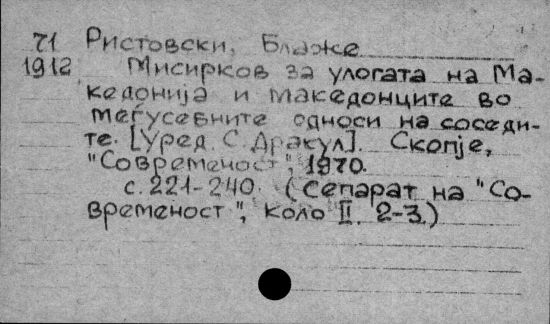 71 Ристовски, Блаже
1912 Мисирков за улогата на Ма-
кедонија и македонците во
меѓусебните односи на соседи-
те. [Уред. С. Дракул]. Скопје,
"Современост", 1970.
с. 221-240. (Сепарат на "Со-
временост", коло II. 2-3.)